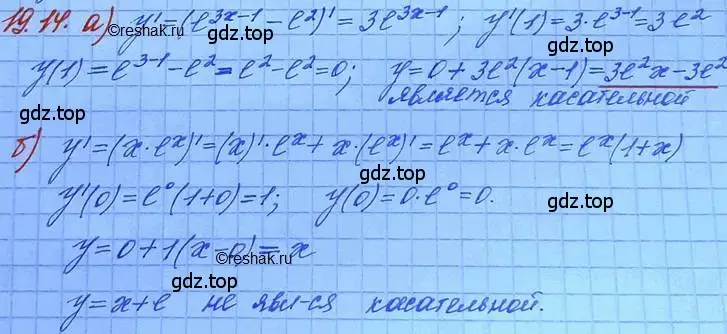 19.14. а) y'=(e^{3x-1}-e^2)'=3e^{3x-1}; y'(1)=3·e^{3-1}=3e^2
gdz.top ©reshak.ru gdz.top
y(1)=e^{3-1}-e^2=e^2-e^2=0; y=0+3e^2(x-1)=3e^2x-3e^2
gdz.top
является касательной
gdz.top
б) y'=(x·e^x)'=(x)'·e^x+x·(e^x)'=e^x+x·e^x=e^x(1+x)
gdz.top
y'(0)=e^0(1+0)=1; y(0)=0·e^0=0.
gdz.top
y=0+1(x-0)=x
©reshak.ru
gdz.top gdz.top
y=x+e не явл-ся касательной.
gdz.top